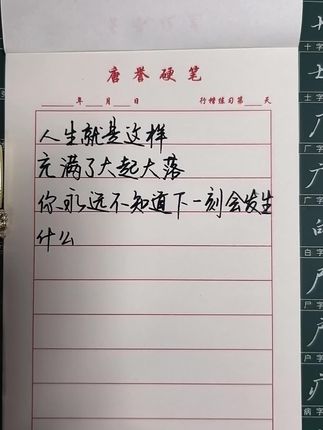 唐誉硬笔
年 月 日 行楷练习第 天
人生就是这样
充满了大起大落
你永远不知道下一刻会发生
什么
十字
厂字
广字
白字
尸字
病字